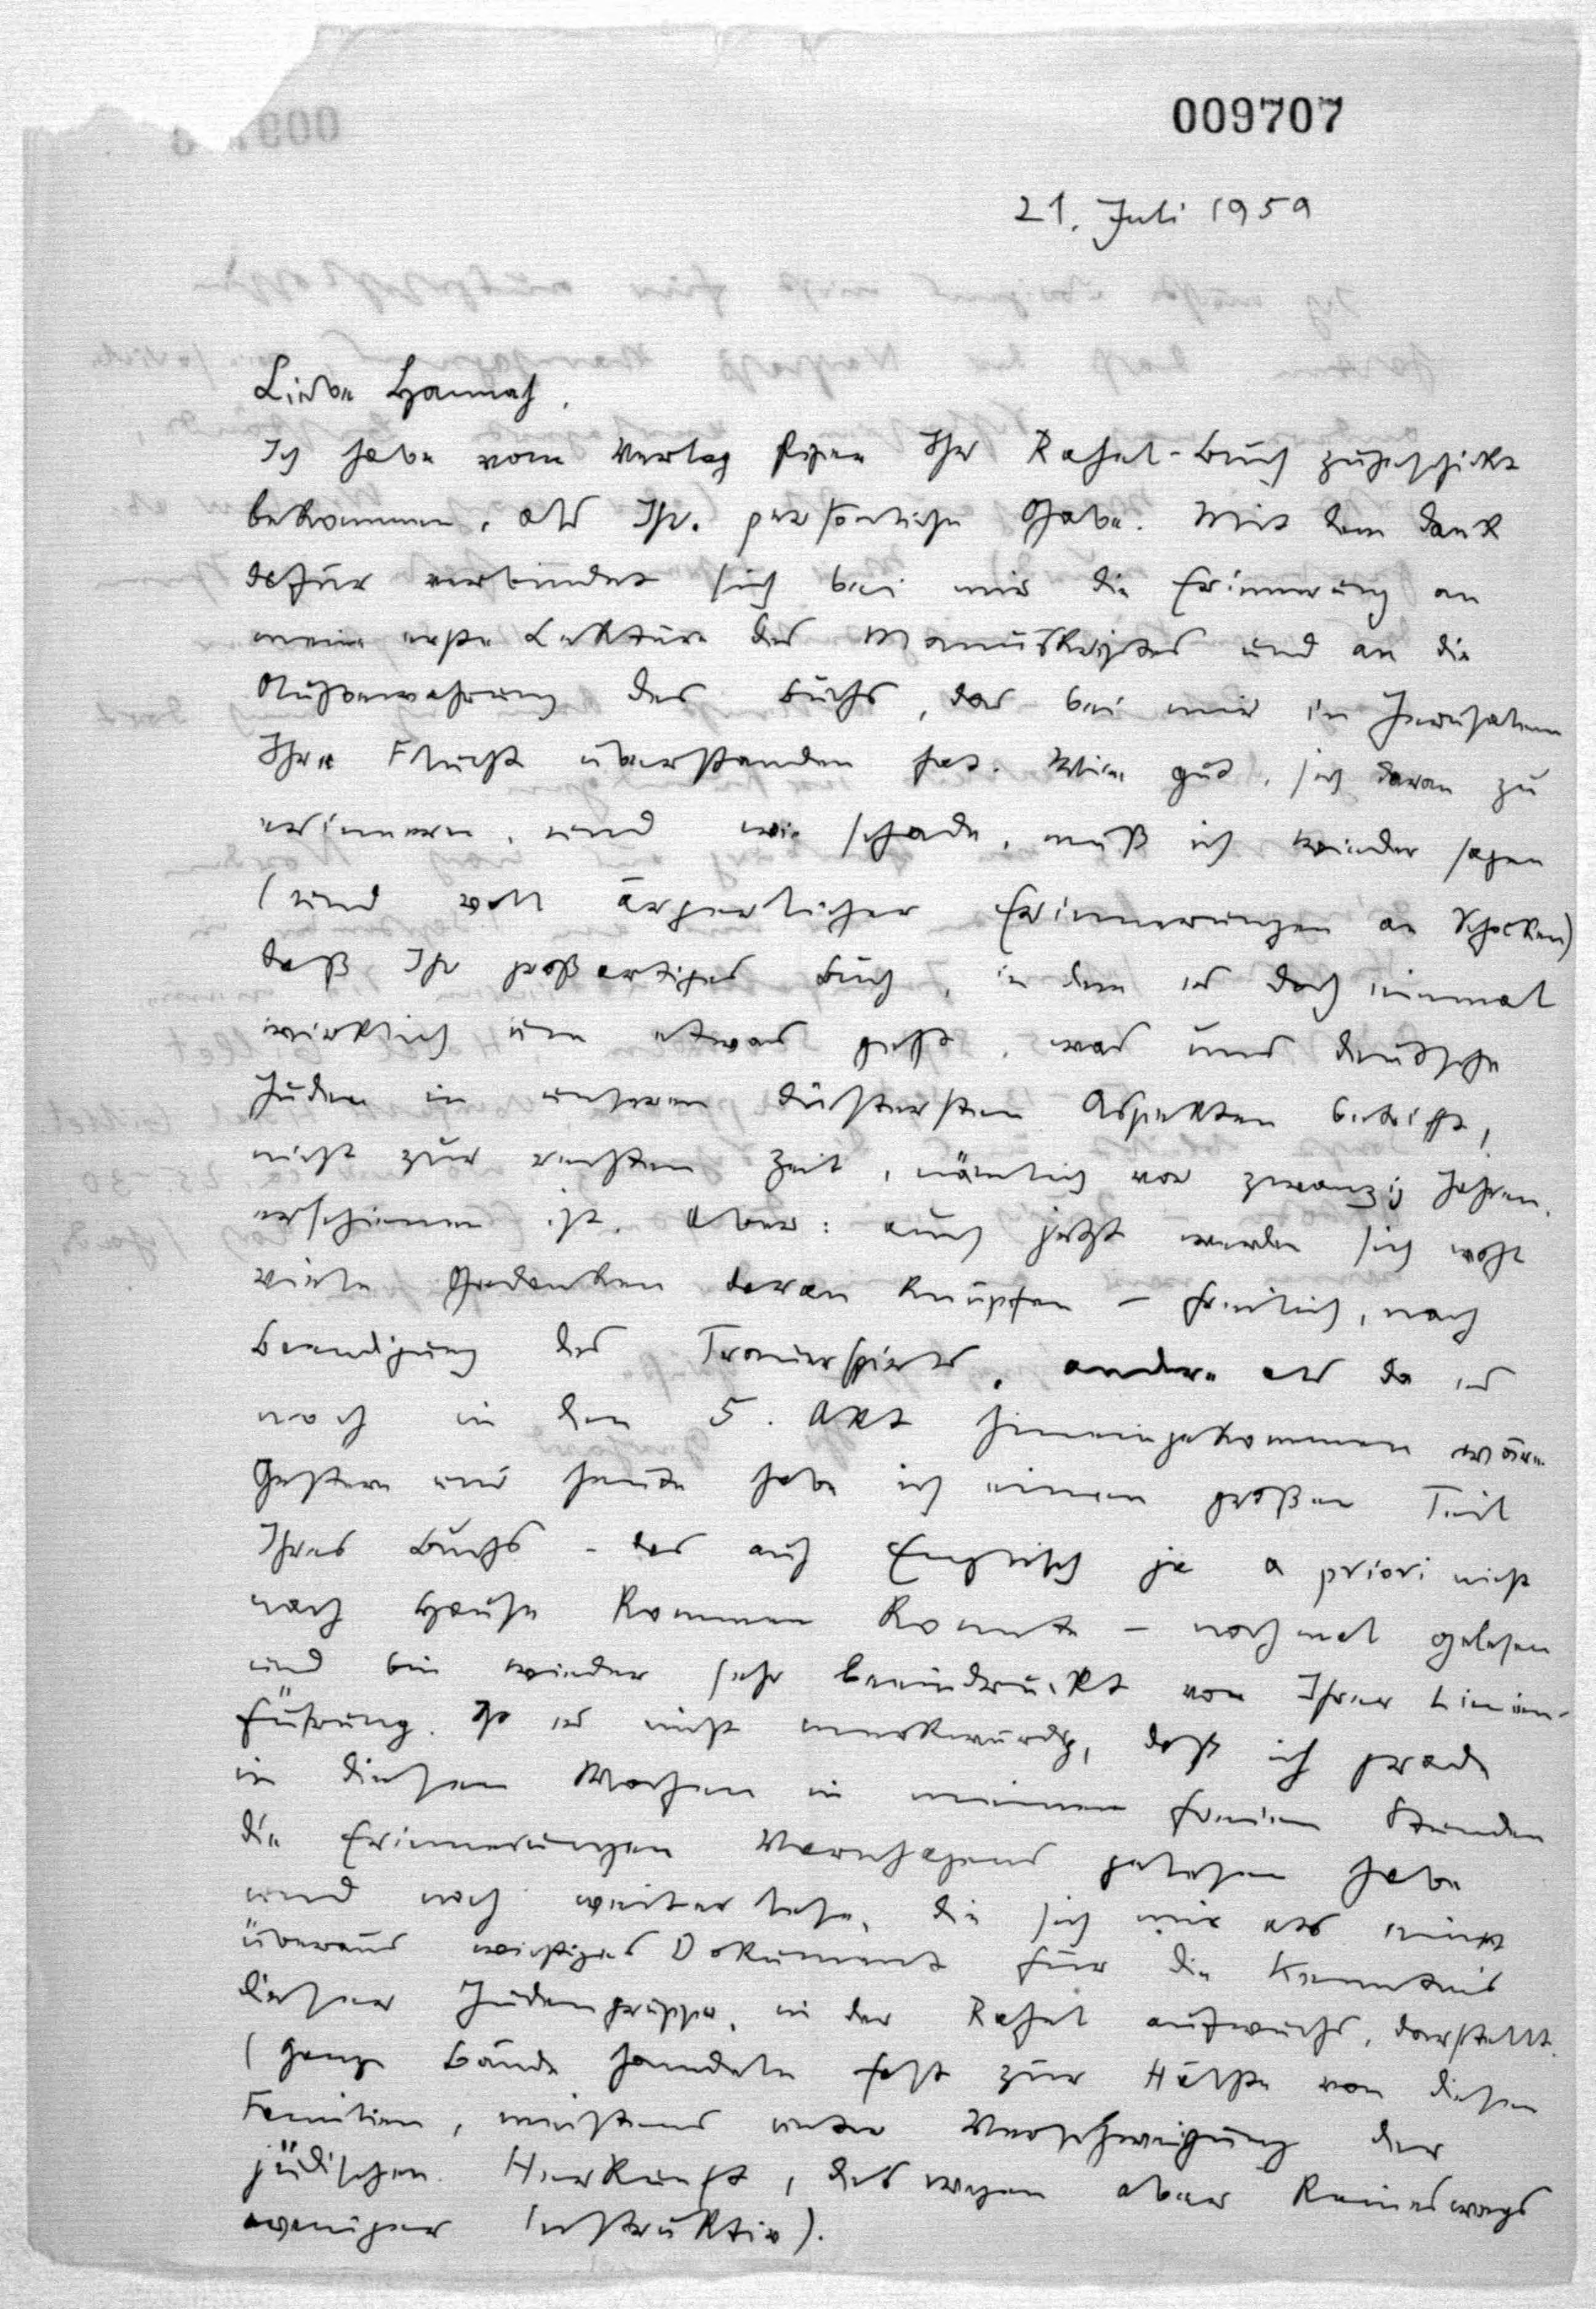 009707
21. Juli 1959
Liebe Hannah,
Ich habe vom Verlag Piper Ihr Rahel-Buch zugeschickt
bekommen, als Ihr. persönliche Gabe. Mit dem Dank
dafür verbindet sich bei mir die Erinnerung an
meine erste Lektüre des Manuskriptes und an die
Aufbewahrung des Buchs, das bei mir in Jerusalem
Ihre Flucht überstanden hat. Wie gut, sich daran zu
erinnern, und wie schade, muß ich wieder sagen
(und voll ärgerlicher Erinnerungen an Schocken)
daß Ihr großartiges Buch, in dem es doch einmal
wirklich um etwas geht, was uns deutsche
Juden in unseren düstersten Aspekten betrifft,
nicht zur rechten Zeit, nämlich vor zwanzig Jahren,
erschienen ist. Aber: auch jetzt werden sich wohl
viele Gedanken daran knüpfen – freilich, nach
Beendigung des Trauerspiels, andere als da es
noch in den 5. Akt hineingekommen wäre.
Gestern und heute habe ich einen großen Teil
Ihres Buchs – das auf Englisch ja a priori nicht
nach Hause kommen konnte – nochmal gelesen
und bin wieder sehr beeindruckt von Ihrer Linien-
führung. Ist es nicht merkwürdig, daß ich grade
in diesen Wochen in meinen freien Stunden
die Erinnerungen Varnhagens gelesen habe
und noch weiter lese, die sich mir als ein
überaus wichtiges Dokument für die Kenntnis
dieser Judengruppe, in der Rahel aufwuchs, darstellt.
(Ganze Bände handeln fast zur Hälfte von diesen
Familien, meistens unter Verschweigung der
jüdischen Herkunft, deswegen aber keineswegs
weniger instruktiv).